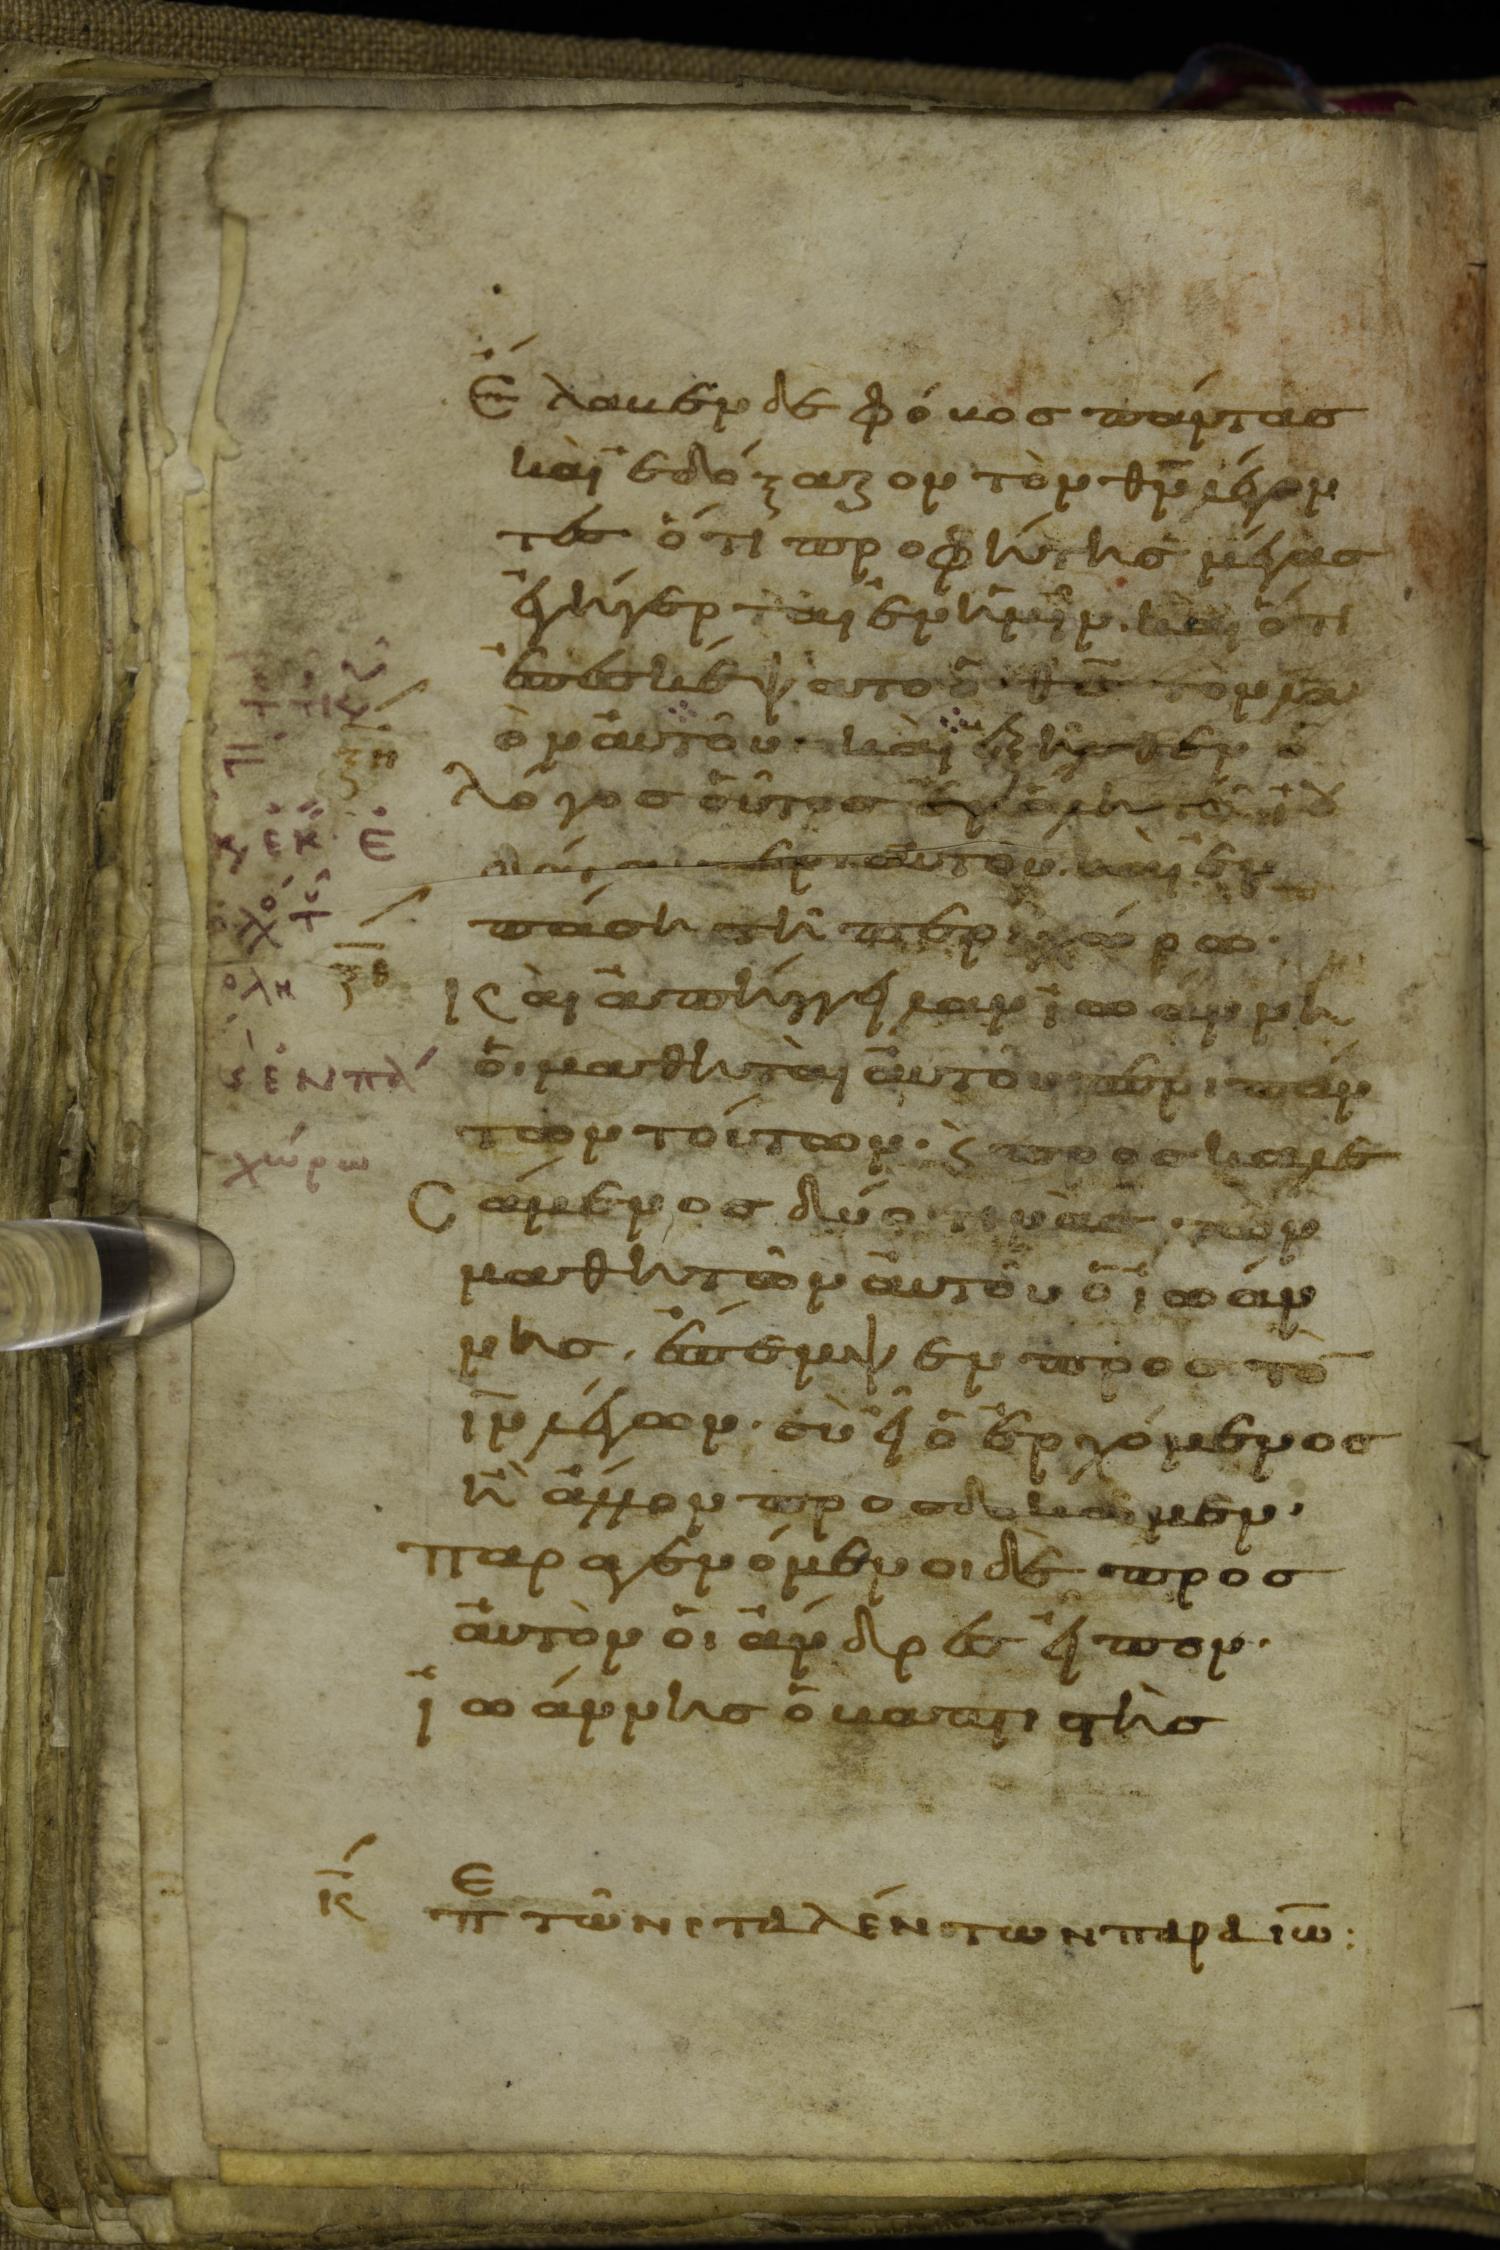 Ἔλακεν δε φόκος πάντας
καὶ ἐδόξαζον τὸν θν̅ λέγον
τες ὅτι προφήτης μέγας
ἐγήγερται ἐν ἡμῖν· καὶ ὅτι
ἐπεσκέψατο ὁ θς̅ τὸν λα
ὸν αὐτοῦ· καὶ ἐξῆλθεν ὁ
λόγος οὗτος
περι αὐτοῦ· καὶ ἐν
πάσῃ τῇ περιχώρω·
Καὶ ἀπήγγειλαν ἰωάννη
οἱ μαθηταὶ αὐτοῦ περι πάν
των τούτων· ϗ προσκαλε
σάμενος δύο τινὰς· τῶν
μαθητῶν αὐτοῦ ὁ ἰωάν
νης, ἔπεμψεν προς τὸ̅
ιν̅ λέγων· σὺ εἶ ὁ ἐρχόμενος
ἢ ἄλλον προσδοκωμεν·
Παραγενόμενοι δὲ προς
αὐτὸν οἱ ἄνδρες εἶπον·
ἰωάννης ὁ καπτιστὴς
κ̅ π̅ε τῶν ἀπο σταλέντων παρα ιω̅:
ξη
ξθ
ἐν πά
χώρω